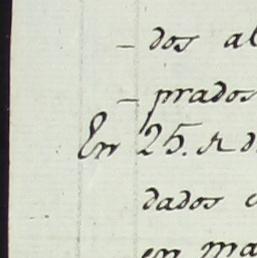 - dos al
- prados
En 25. A d
dados e
en ma